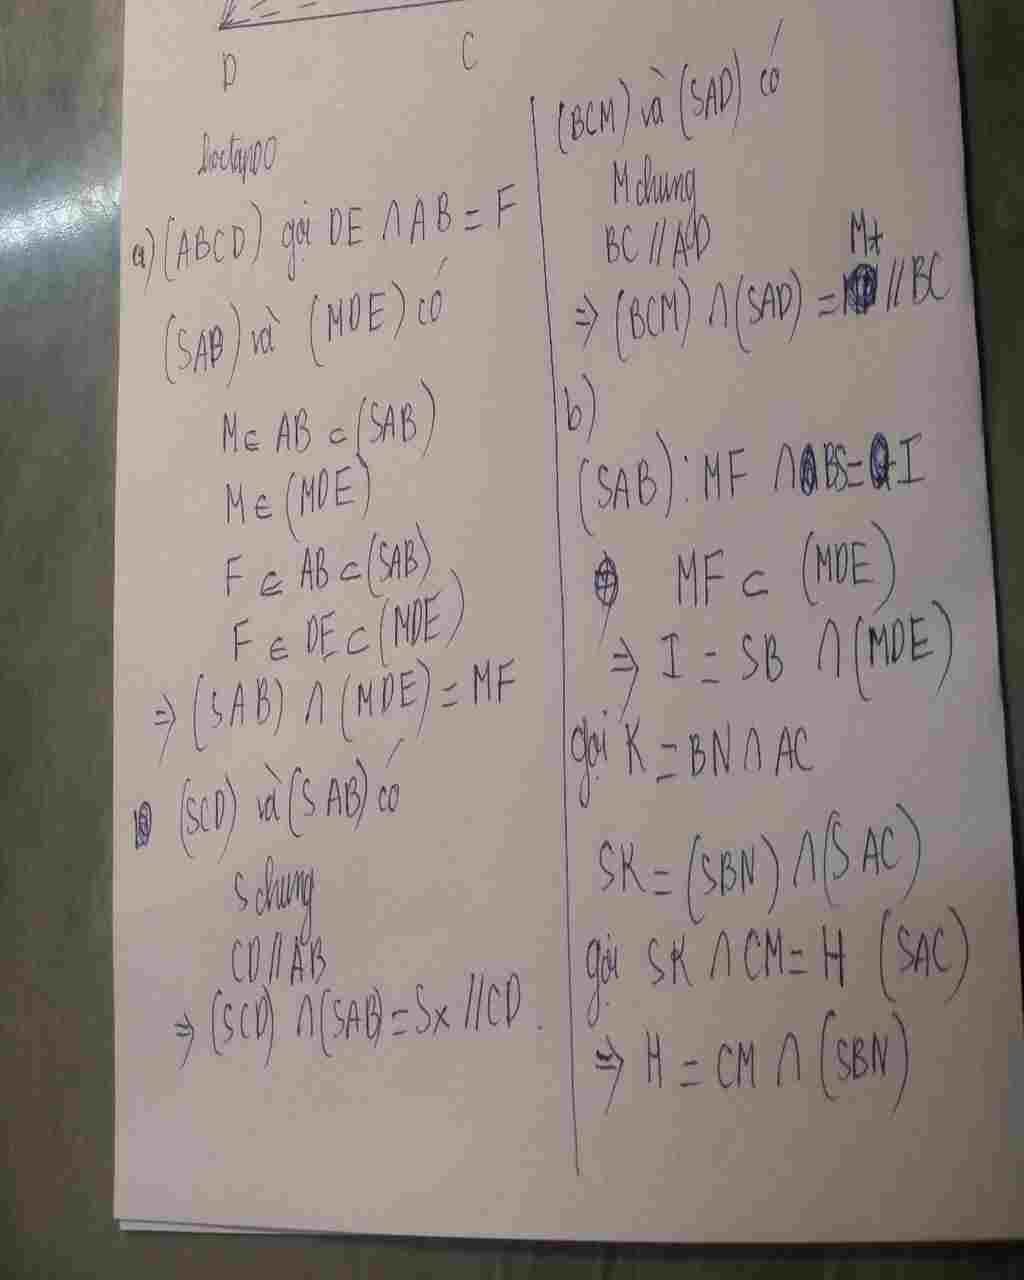 D
C
hoctap00
a) (ABCD) gọi DE ∩ AB = F
(SAB) và (MDE) có
M ∈ AB ⊂ (SAB)
M ∈ (MDE)
F ∈ AB ⊂ (SAB)
F ∈ DE ⊂ (MDE)
⇒ (SAB) ∩ (MDE) = MF
(SCD) và (SAB) có
S chung
CD // AB
⇒ (SCD) ∩ (SAB) = Sx // CD.
(BCM) và (SAD) có
M chung
BC // AD
⇒ (BCM) ∩ (SAD) = Mt // BC
b)
(SAB) : MF ∩ BS = I
MF ⊂ (MDE)
⇒ I = SB ∩ (MDE)
gọi K = BN ∩ AC
SK = (SBN) ∩ (SAC)
gọi SK ∩ CM = H (SAC)
⇒ H = CM ∩ (SBN)